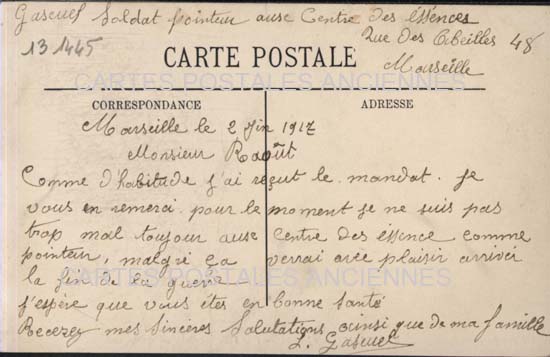 Gascuel Soldat pointeur ause Centre des éssences
Rue des Abeilles 48
Marseille
13 1445
CARTE POSTALE
CARTES POSTALES ANCIENNES
CORRESPONDANCE
ADRESSE
Marseille le 2 Jin 1917
Monsieur Raoût
Comme d'habitude j'ai reçut le mandat. je
vous en remerci pour le moment je ne suis pas
trop mal toujour ause Centre des éssence comme
pointeur, malgré ça verai avec plaisir arriver
la fin de la guerre
CARTES POSTALES ANCIENNES
j'espère que vous étes en bonne santé
Recezez mes Sincères Salutations ainsi que de ma famille
L. Gascuel